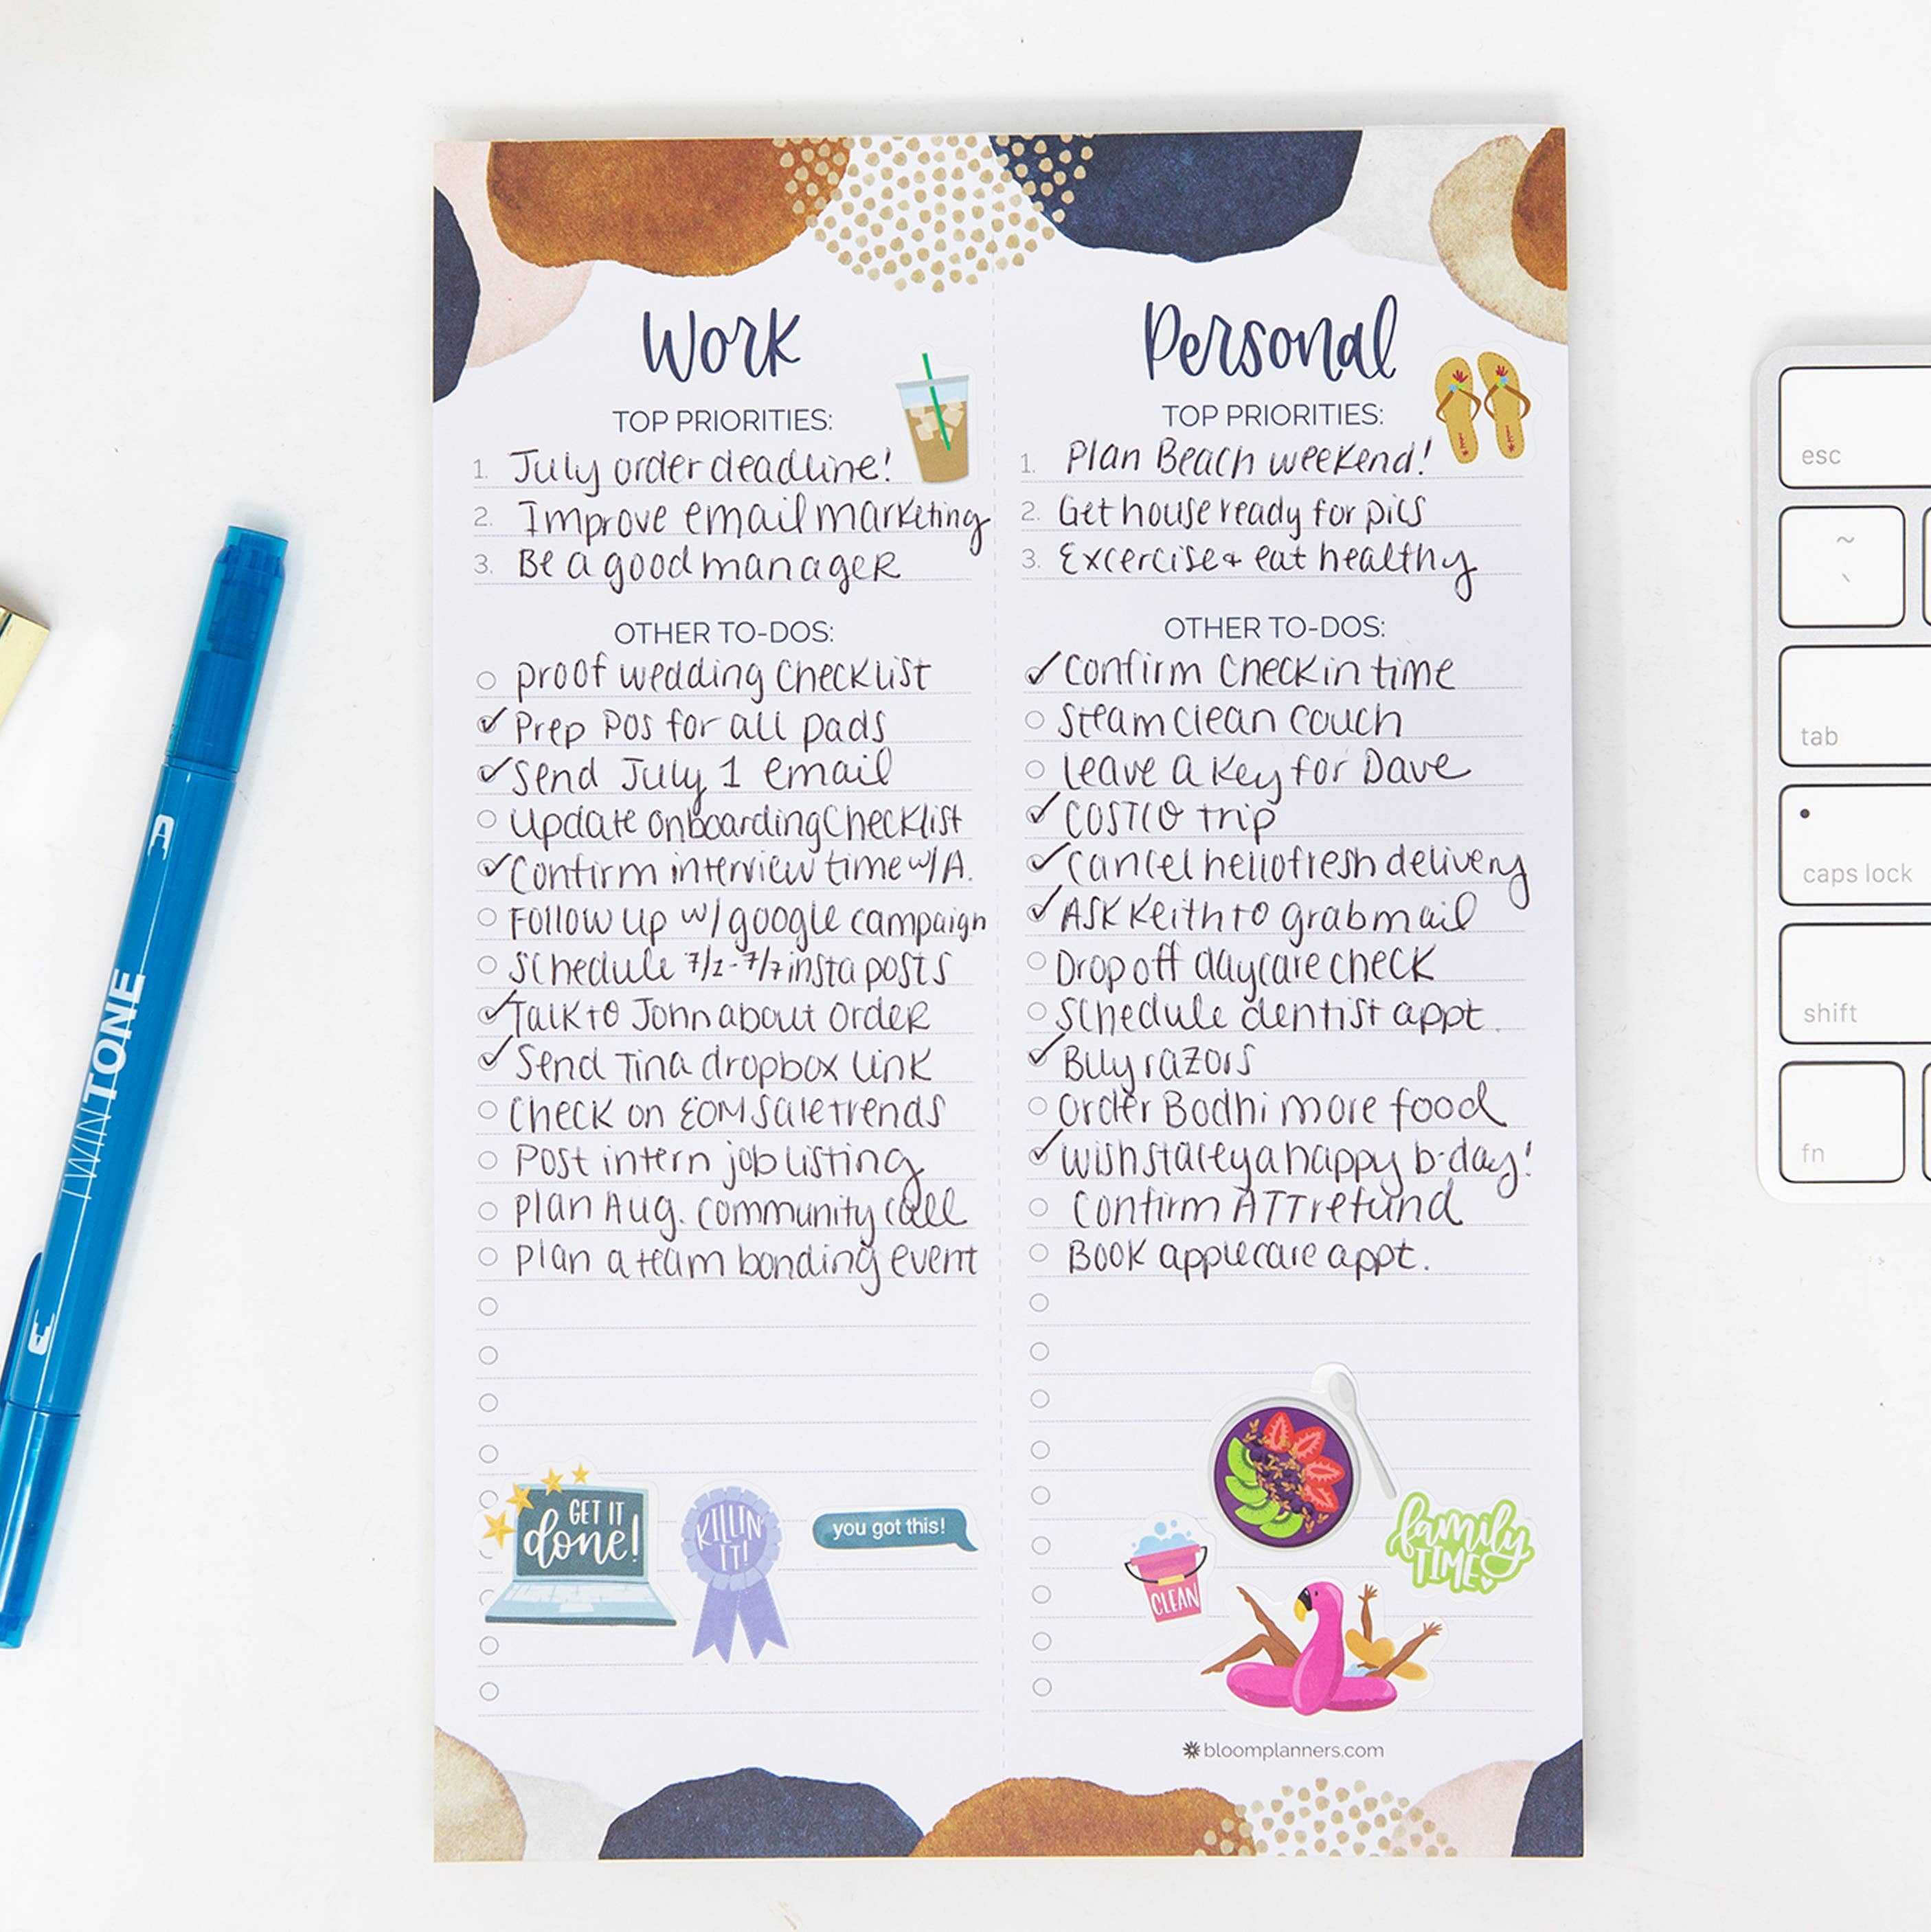 Work
TOP PRIORITIES:
1. July order deadline!
2. Improve email marketing
3. Be a good manager
OTHER TO-DOS:
proof wedding checklist
Prep POS for all pads
Send July 1 email
update onboarding checklist
Confirm interview time w/A.
Follow up w/ google campaign
Schedule 7/1-7/7 insta posts
Talk to John about order
Send Tina dropbox link
Check on EOM sale trends
Post intern job listing
Plan Aug. community call
Plan a team bonding event
GET IT
done!
KILLIN'
IT!
you got this!
Personal
TOP PRIORITIES:
1. Plan Beach weekend!
2. Get house ready for pics
3. Excercise + eat healthy
OTHER TO-DOS:
Confirm check in time
Steam clean couch
leave a key for Dave
COSTCO trip
Cancel hellofresh delivery
ASK Keith to grab mail
Drop off daycare check
Schedule dentist appt.
Buy razors
order Bodhi more food
wish stacey a happy b-day!
Confirm ATT refund
Book applecare appt.
family
TIME
CLEAN
bloomplanners.com
TWINTONE
esc
~
`
tab
caps lock
shift
fn